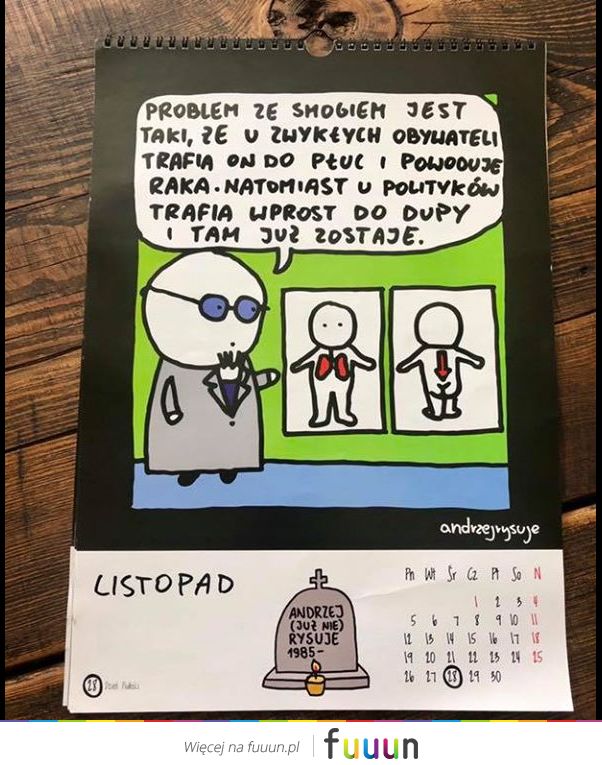 PROBLEM ZE SMOGIEM JEST
TAKI, ŻE U ZWYKŁYCH OBYWATELI
TRAFIA ON DO PŁUC I POWODUJE
RAKA. NATOMIAST U POLITYKÓW
TRAFIA WPROST DO DUPY
I TAM JUŻ ZOSTAJE.
andrzejrysuje
LISTOPAD
ANDRZEJ
(JUŻ NIE)
RYSUJE
1985-
Pn Wt Śr Cz Pt So N
1 2 3 4
5 6 7 8 9 10 11
12 13 14 15 16 17 18
19 20 21 22 23 24 25
26 27 28 29 30
28 Dzień
Więcej na fuuun.pl | fuuun